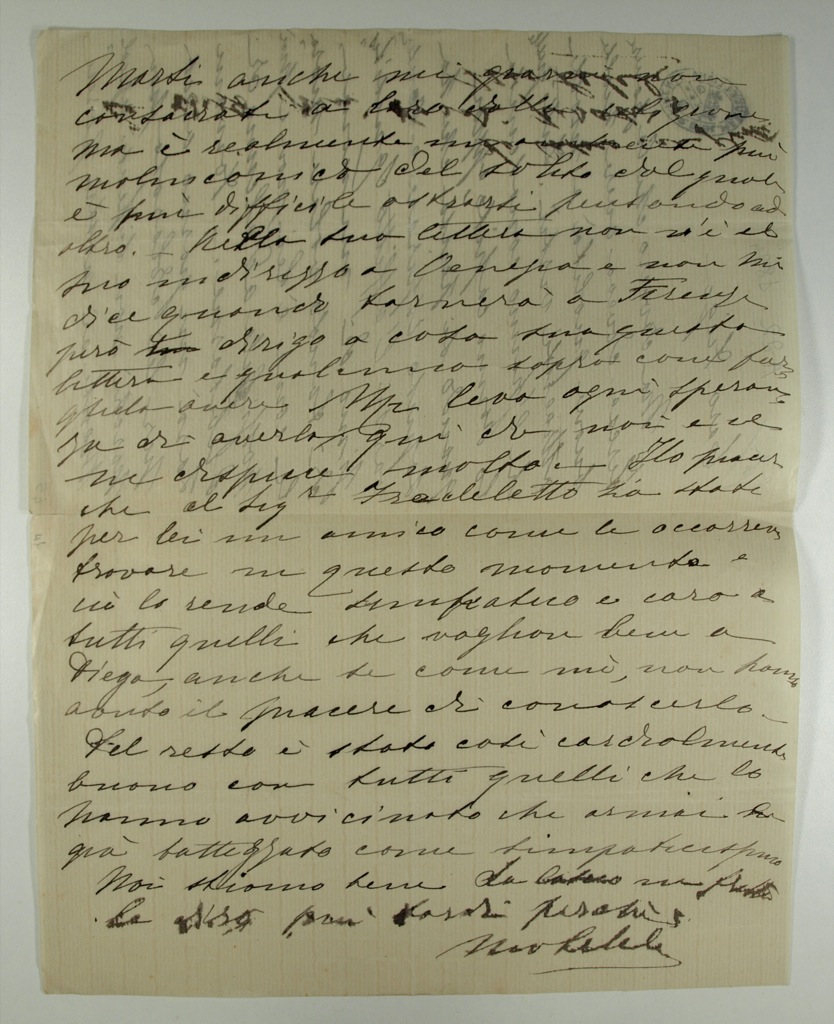 Morti anche nei giorni non
consacrati a loro dalla religione
ma è realmente un più
malinconico del solito dal quale
è più difficile astrarsi pensando ad
altro. – Nella sua lettera non v'è il
suo indirizzo a Venezia e non mi
dice quando tornerà a Firenze
però dirigo a casa sua questa
lettera e qualcuno saprà come far
gliela avere. Mi leva ogni speran
za di averla qui da noi e ce
ne dispiace molto. – Ho piacere
che il Sigr Fradeletto sia stato
per lei un amico come le occorreva
trovare in questo momento e
ciò lo rende simpatico e caro a
tutti quelli che voglion bene a
Diego, anche se come mè, non hanno
avuto il piacere di conoscerlo –
Del resto è stato così cordialmente
buono con tutti quelli che lo
hanno avvicinato che ormai è
già battezzato come simpaticissimo
Noi stiamo bene La in fretta
Le dirò più tardi perchè.